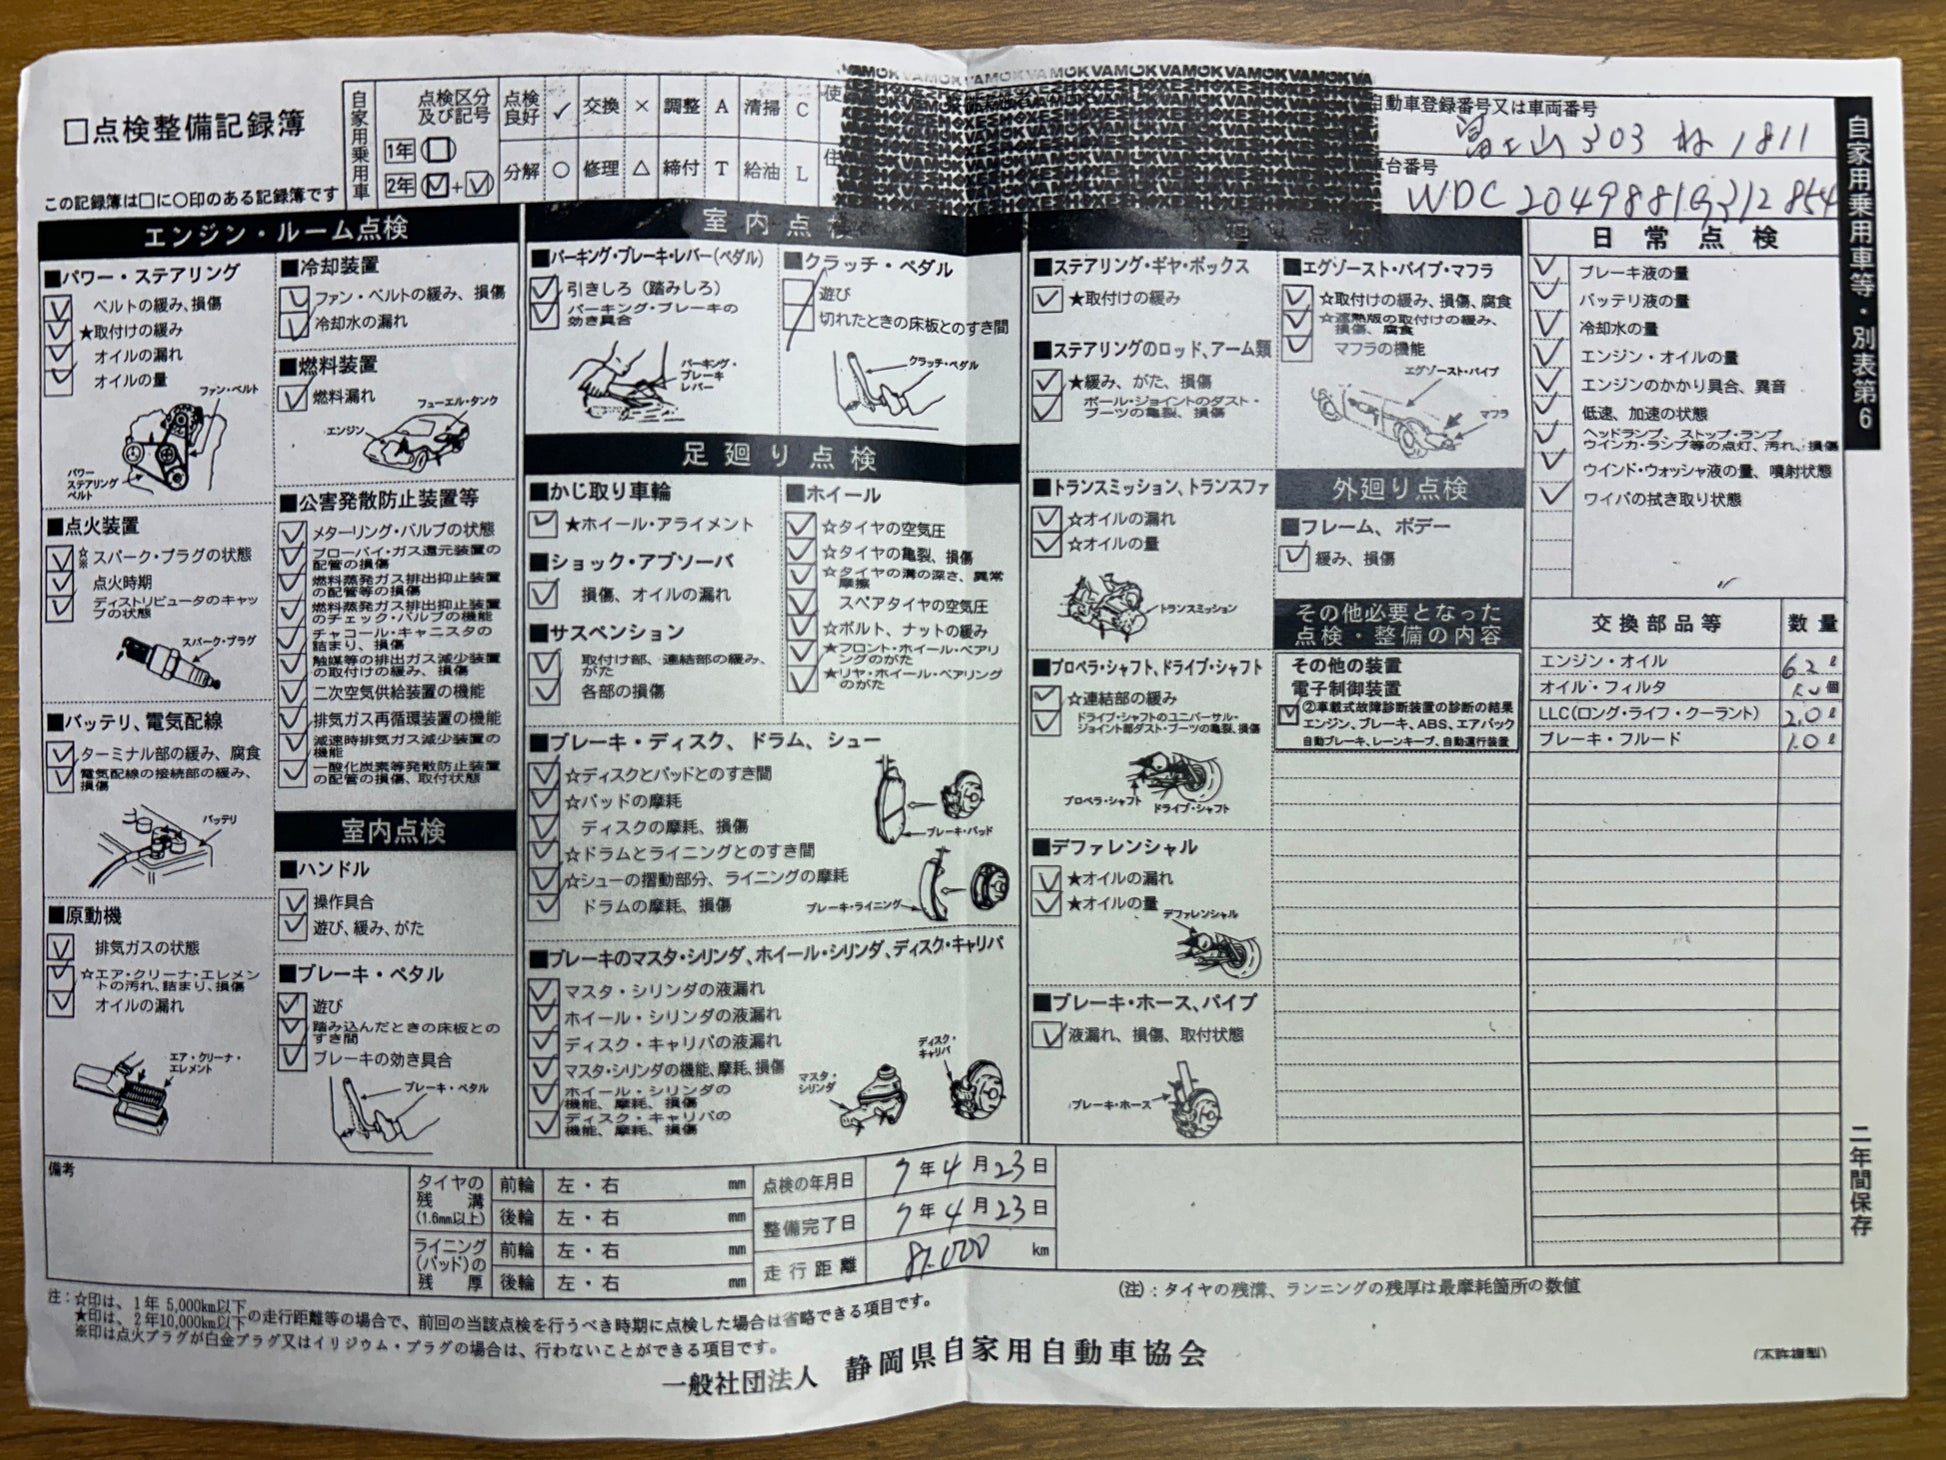 □点検整備記録簿
この記録簿は□に○印のある記録簿です
自家用乗用車
点検区分及び記号
1年(□)
2年(☑+☑)
点検良好 ✓ 交換 × 調整 A 清掃 C
分解 ○ 修理 △ 締付 T 給油 L
自動車登録番号又は車両番号
富士山 303 1811
車台番号
自家用乗用車等・別表第6
エンジン・ルーム点検
■パワー・ステアリング
ベルトの緩み、損傷
★取付けの緩み
オイルの漏れ
オイルの量
ファン・ベルト
パワーステアリングベルト
■点火装置
☆※スパーク・プラグの状態
点火時期
ディストリビュータのキャップの状態
スパーク・プラグ
■バッテリ、電気配線
ターミナル部の緩み、腐食
電気配線の接続部の緩み、損傷
バッテリ
■原動機
排気ガスの状態
☆エア・クリーナ・エレメントの汚れ、詰まり、損傷
オイルの漏れ
エア・クリーナ・エレメント
■冷却装置
ファン・ベルトの緩み、損傷
冷却水の漏れ
■燃料装置
燃料漏れ
フューエル・タンク
エンジン
■公害発散防止装置等
メターリング・バルブの状態
ブローバイ・ガス還元装置の配管の損傷
燃料蒸発ガス排出抑止装置の配管等の損傷
燃料蒸発ガス排出抑止装置のチェック・バルブの機能
チャコール・キャニスタの詰まり、損傷
触媒等の排出ガス減少装置の取付けの緩み、損傷
二次空気供給装置の機能
排気ガス再循環装置の機能
減速時排気ガス減少装置の機能
一酸化炭素等発散防止装置の配管の損傷、取付状態
室内点検
■ハンドル
操作具合
遊び、緩み、がた
■ブレーキ・ペタル
遊び
踏み込んだときの床板とのすき間
ブレーキの効き具合
ブレーキ・ペタル
室内点検
■パーキング・ブレーキ・レバー(ペダル)
引きしろ(踏みしろ)
パーキング・ブレーキの効き具合
パーキング・ブレーキレバー
■クラッチ・ペダル
遊び
切れたときの床板とのすき間
クラッチ・ペダル
足廻り点検
■かじ取り車輪
★ホイール・アライメント
■ショック・アブソーバ
損傷、オイルの漏れ
■サスペンション
取付け部、連結部の緩み、がた
各部の損傷
■ホイール
☆タイヤの空気圧
☆タイヤの亀裂、損傷
☆タイヤの溝の深さ、異常摩擦
スペアタイヤの空気圧
☆ボルト、ナットの緩み
★フロント・ホイール・ベアリングのがた
★リヤ・ホイール・ベアリングのがた
■ブレーキ・ディスク、ドラム、シュー
☆ディスクとパッドとのすき間
☆パッドの摩耗
ディスクの摩耗、損傷
☆ドラムとライニングとのすき間
☆シューの摺動部分、ライニングの摩耗
ドラムの摩耗、損傷
ブレーキ・パッド
ブレーキ・ライニング
■ブレーキのマスタ・シリンダ、ホイール・シリンダ、ディスク・キャリパ
マスタ・シリンダの液漏れ
ホイール・シリンダの液漏れ
ディスク・キャリパの液漏れ
マスタ・シリンダの機能、摩耗、損傷
ホイール・シリンダの機能、摩耗、損傷
ディスク・キャリパの機能、摩耗、損傷
マスタ・シリンダ
ディスク・キャリパ
■ステアリング・ギヤ・ボックス
★取付けの緩み
■ステアリングのロッド、アーム類
★緩み、がた、損傷
ボール・ジョイントのダスト・ブーツの亀裂、損傷
■トランスミッション、トランスファ
☆オイルの漏れ
☆オイルの量
トランスミッション
■プロペラ・シャフト、ドライブ・シャフト
☆連結部の緩み
ドライブ・シャフトのユニバーサル・ジョイント部ダスト・ブーツの亀裂、損傷
プロペラ・シャフト
ドライブ・シャフト
■デファレンシャル
★オイルの漏れ
★オイルの量
デファレンシャル
■ブレーキ・ホース、パイプ
液漏れ、損傷、取付状態
ブレーキ・ホース
■エグゾースト・パイプ・マフラ
☆取付けの緩み、損傷、腐食
☆遮熱版の取付けの緩み、損傷、腐食
マフラの機能
エグゾースト・パイプ
マフラ
外廻り点検
■フレーム、ボデー
緩み、損傷
その他必要となった点検・整備の内容
その他の装置
電子制御装置
②車載式故障診断装置の診断の結果
エンジン、ブレーキ、ABS、エアバック
自動ブレーキ、レーンキープ、自動運行装置
日常点検
ブレーキ液の量
バッテリ液の量
冷却水の量
エンジン・オイルの量
エンジンのかかり具合、異音
低速、加速の状態
ヘッドランプ、ストップ・ランプ
ウインカ・ランプ等の点灯、汚れ、損傷
ウインド・ウォッシャ液の量、噴射状態
ワイパの拭き取り状態
交換部品等 数量
エンジン・オイル 6.2 ℓ
オイル・フィルタ 個
LLC(ロング・ライフ・クーラント) 2.0 ℓ
ブレーキ・フルード 1.0 ℓ
二年間保存
備考
タイヤの残溝(1.6mm以上) 前輪 左・右 mm
後輪 左・右 mm
ライニング(パッド)の残厚 前輪 左・右 mm
後輪 左・右 mm
点検の年月日 7年4月23日
整備完了日 7年4月23日
走行距離 81.000 km
(注):タイヤの残溝、ランニングの残厚は最摩耗箇所の数値
注:☆印は、1年 5,000km以下
★印は、2年10,000km以下の走行距離等の場合で、前回の当該点検を行うべき時期に点検した場合は省略できる項目です。
※印は点火プラグが白金プラグ又はイリジウム・プラグの場合は、行わないことができる項目です。
一般社団法人 静岡県自家用自動車協会
(不許複製)